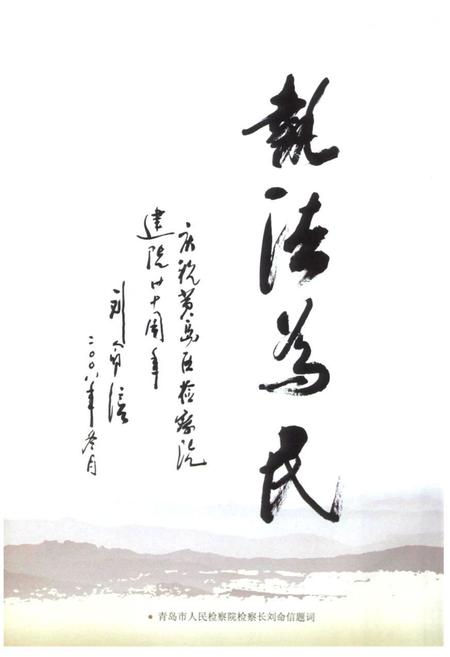 執法为民
庆祝黄岛区检察院
建院廿十周年
刘命信
二〇〇八年冬月
• 青岛市人民检察院检察长刘命信题词